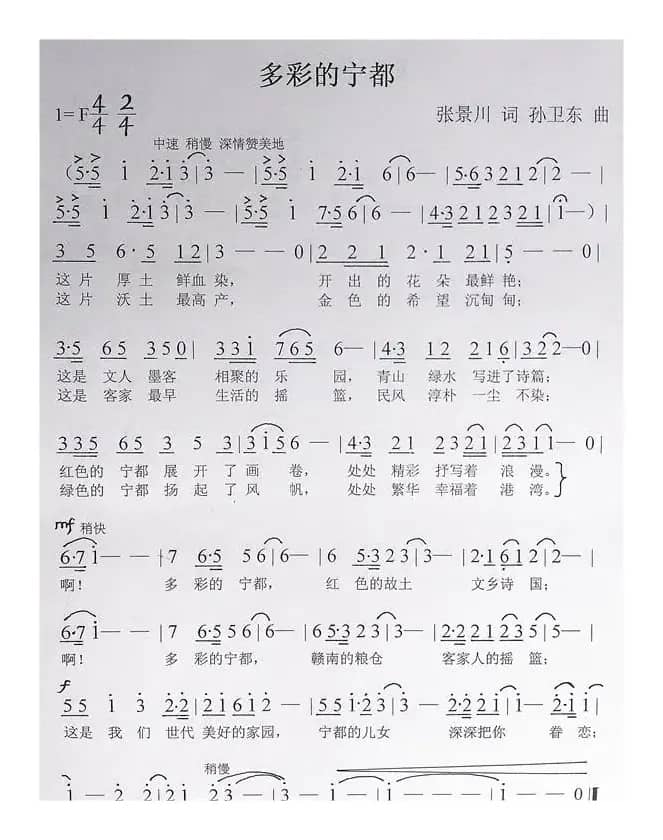 多彩的宁都
1=F 4/4 2/4
张景川 词 孙卫东 曲
中速 稍慢 深情赞美地
(5·5 i 2·i 3|3 - - |5·5 i 2·i 6|6 - - |5·6 3 2 1 2|2 - |
5·5 i 2·i 3|3 - - |5·5 i 7·5 6|6 - |4·3 2 2 1 2 3 2 1|i - )|
3 5 6·5 1 2|3 - - 0|2 2 1 2·1 2 1|5 - - 0|
这片 厚土 鲜血染, 开出的花朵 最鲜艳;
这片 沃土 最高产, 金色的希望 沉甸甸;
3·5 6 5 3 5 0|3 3 1 7 6 5 6 - |4·3 1 2 2 1 6|1 2 - 0|
这是 文人 墨客 相聚的 乐 园, 青山 绿水 写进了诗篇;
这是 客家 最早 生活的 摇 篮, 民风 淳朴 一尘 不染;
3 3 5 6 5 3 5|3 i 5 6 - |4·3 2 1 2 3 2 1|2 3 1 1 - 0|
红色的 宁都 展 开 了 画 卷, 处处 精彩 抒写着 浪 漫。
绿色的 宁都 扬 起 了 风 帆, 处处 繁华 幸福着 港 湾。
mf 稍快
6·7 i - - |7 6·5 5 6|6 - - |6 5·3 2 3|3 - - |2·1 6 1 2|2 - |
啊! 多 彩的 宁都, 红 色的故土 文乡诗 国;
6·7 i - |7 6·5 5 6 6|6 - |6 5·3 2 3|3 - |2·2 2 1 5|5 - - |
啊! 多 彩的宁都, 赣南的粮仓 客家人的摇 篮;
f
5 5 i 3 2·2|2 1 6 1 2 - |5 5 i·2 3|3 - |2·2 2 i|i - - 2·i i|
这是 我 们 世代 美好的家园, 宁都的儿女 深深把你 眷 恋;
稍慢